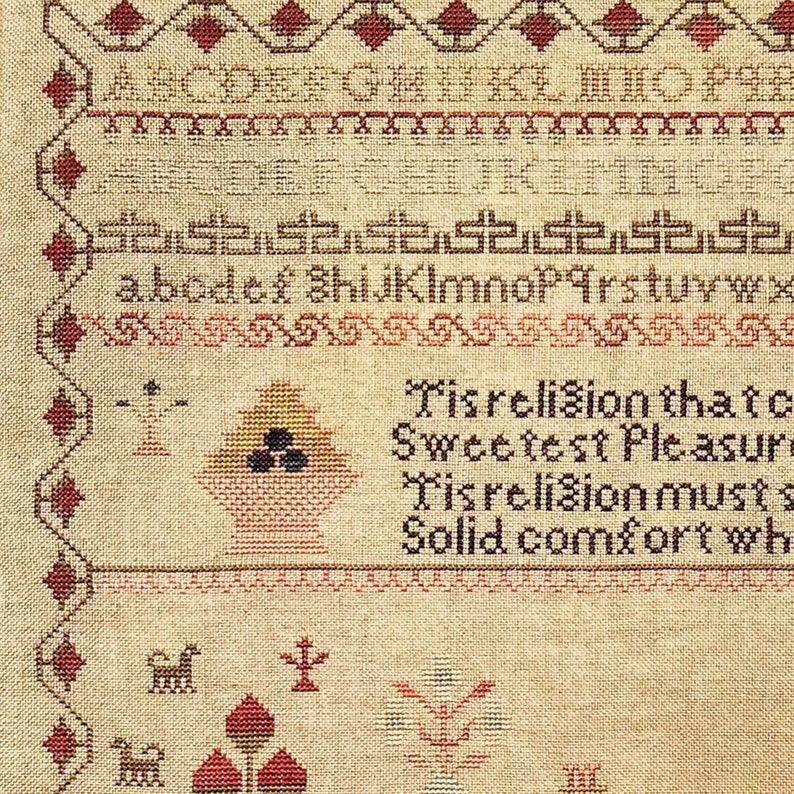 ABCDEFGHIJKLMNOPQR
ABCDEFGHIJKLMNOPQ
abcdefghijklmnopqrstuvwx
Tis religion that c
Sweetest Pleasur
Tis religion must s
Solid comfort wh